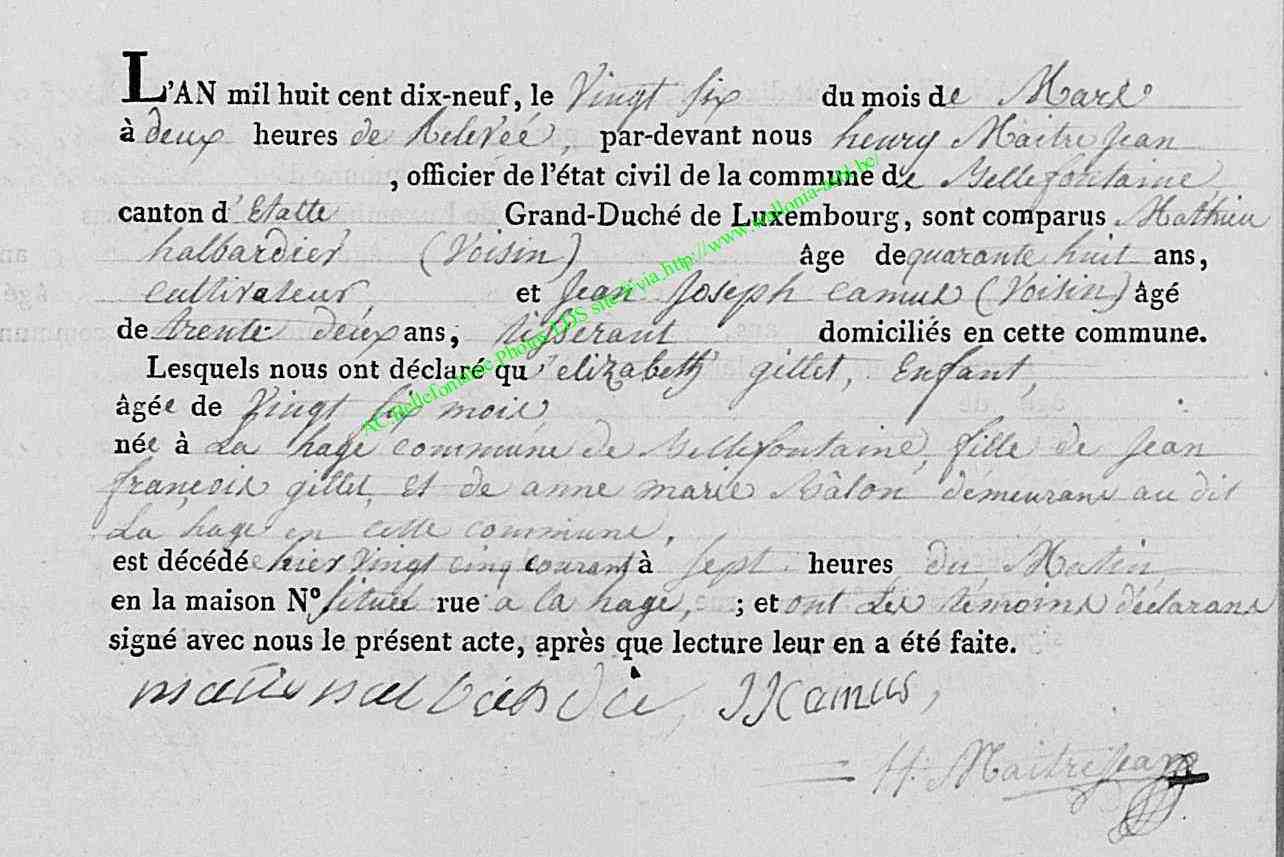 L'AN mil huit cent dix-neuf, le Vingt six du mois de Mars
à deux heures de Relevée, par-devant nous henry Maitrejean
, officier de l'état civil de la commune de Bellefontaine,
canton d'Etalle Grand-Duché de Luxembourg, sont comparus Mathieu
halbardier (Voisin) âge de quarante huit ans,
cultivateur et Jean Joseph camus (Voisin) âgé
de trente deux ans, tisserant domiciliés en cette commune.
Lesquels nous ont déclaré qu'elizabeth gillet, Enfant,
âgée de Vingt six mois
née à La hage commune de Bellefontaine, fille de Jean
françois gillet, et de anne marie demeurans au dit
La hage en cette commune,
est décédée hier Vingt cinq courant à sept heures du Matin
en la maison N° située rue a la hage, ; et ont Les témoins déclarans
signé avec nous le présent acte, après que lecture leur en a été faite.
JJ Camus,
H. Maitrejean
AC Bellefontaine Photos LDS site via http://www.wallonia-asbl.be/